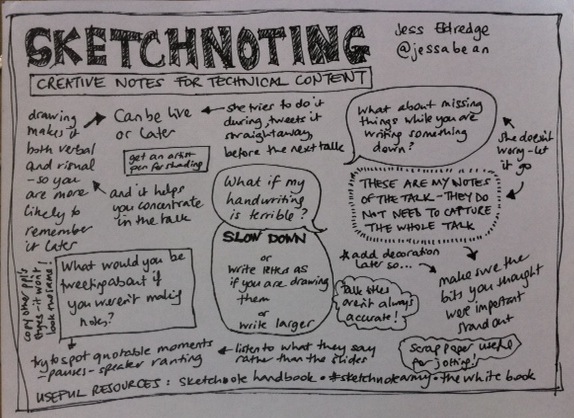 SKETCHNOTING
Jess Eldredge
@jessabean
CREATIVE NOTES FOR TECHNICAL CONTENT
drawing
makes it
both verbal
and visual
- so you
are more
likely to
remember
it later
Can be live
or later
she tries to do it
during, tweets it
straightaway,
before the next talk
get an artist
pen for shading
and it helps
you concentrate
in the talk
What about missing
things while you are
writing something
down?
she doesn't
worry - let
it go
THESE ARE MY NOTES
OF THE TALK - THEY DO
NOT NEED TO CAPTURE
THE WHOLE TALK
What if my
handwriting
is terrible?
SLOW DOWN
or
write letters as
if you are drawing
them
or
write larger
add decoration
later so...
make sure the
bits you thought
were important
stand out
Talk titles
aren't always
accurate!
copy other ppl's
styles - it won't
look the same!
What would you be
tweeting about if
you weren't making
notes?
try to spot quotable moments
- pauses - speaker ranting
listen to what they say
rather than the slides
scrap paper useful
for jotting!
USEFUL RESOURCES: sketchnote handbook • #sketchnotearmy • the white book